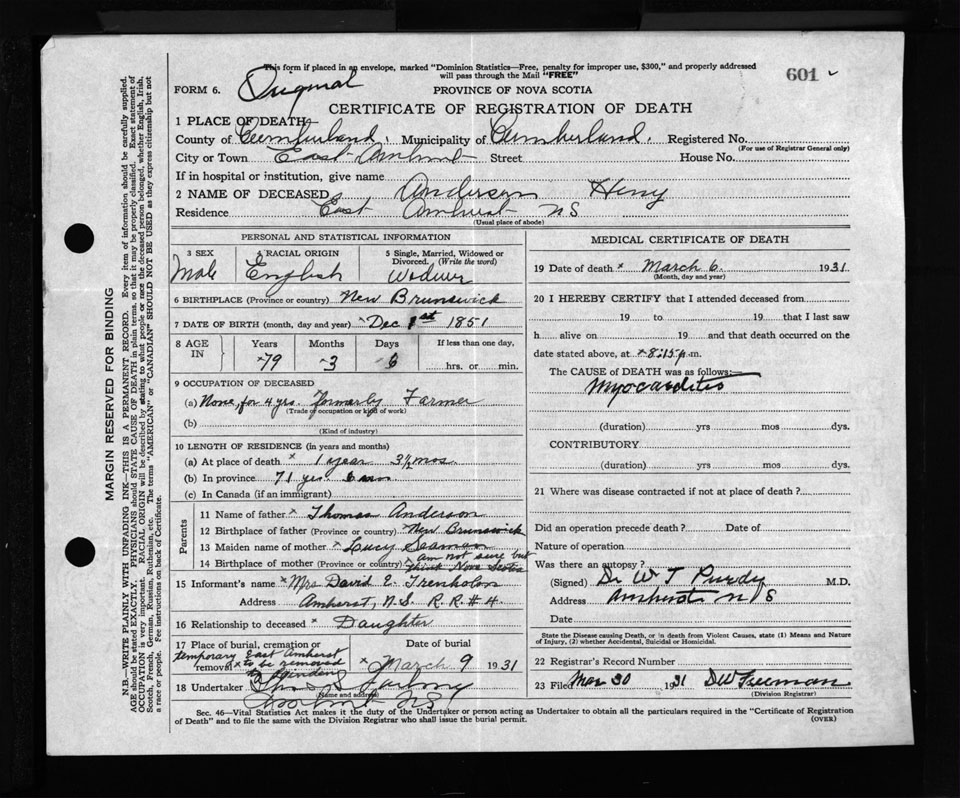 This form if placed in an envelope, marked "Dominion Statistics—Free, penalty for improper use, $300," and properly addressed
will pass through the Mail "FREE"
601
FORM 6.
Original
PROVINCE OF NOVA SCOTIA
CERTIFICATE OF REGISTRATION OF DEATH
1 PLACE OF DEATH
County of Cumberland, Municipality of Cumberland. Registered No.
(For use of Registrar General only)
City or Town East Amherst Street House No.
If in hospital or institution, give name
2 NAME OF DECEASED Anderson Henry
Residence East Amherst NS
(Usual place of abode)
PERSONAL AND STATISTICAL INFORMATION
3 SEX
Male
RACIAL ORIGIN
English
5 Single, Married, Widowed or
Divorced. (Write the word)
Widower
6 BIRTHPLACE (Province or country) New Brunswick
7 DATE OF BIRTH (month, day and year) Dec 1st 1851
8 AGE
IN
Years Months Days If less than one day,
79 3 6 hrs. or min.
9 OCCUPATION OF DECEASED
(a) None, for 4 yrs. formerly Farmer
(Trade of occupation or kind of work)
(b)
(Kind of industry)
10 LENGTH OF RESIDENCE (in years and months)
(a) At place of death 1 year 3½ mos.
(b) In province 71 yrs.
(c) In Canada (if an immigrant)
Parents
11 Name of father Thomas Anderson
12 Birthplace of father (Province or country) New Brunswick
13 Maiden name of mother Lucy Seaman
14 Birthplace of mother (Province or country) am not sure but
think Nova Scotia
15 Informant's name Mrs David E. Trenholm
Address Amherst, N.S. R.R. #4
16 Relationship to deceased Daughter
17 Place of burial, cremation or
removal
temporary East Amherst
to be removed
Date of burial
March 9 1931
18 Undertaker
(Name and address)
NS
MEDICAL CERTIFICATE OF DEATH
19 Date of death March 6. 1931
(Month, day and year)
20 I HEREBY CERTIFY that I attended deceased from
19 to 19 that I last saw
h alive on 19 and that death occurred on the
date stated above, at 8:15 p.m.
The CAUSE of DEATH was as follows:—
Myocarditis
(duration) yrs mos dys.
CONTRIBUTORY
(duration) yrs mos dys.
21 Where was disease contracted if not at place of death?
Did an operation precede death? Date of
Nature of operation
Was there an autopsy?
(Signed) Dr W T Purdy M.D.
Address Amherst N S
Date
State the Disease causing Death, or in death from Violent Causes, state (1) Means and Nature
of Injury, (2) whether Accidental, Suicidal or Homicidal.
22 Registrar's Record Number
23 Filed Mar 30 1931 DW Freeman
(Division Registrar)
Sec. 46—Vital Statistics Act makes it the duty of the Undertaker or person acting as Undertaker to obtain all the particulars required in the "Certificate of Registration
of Death" and to file the same with the Division Registrar who shall issue the burial permit.
(OVER)
MARGIN RESERVED FOR BINDING
N.B.—WRITE PLAINLY WITH UNFADING INK—THIS IS A PERMANENT RECORD. Every item of information should be carefully supplied.
AGE should be stated EXACTLY. PHYSICIANS should STATE CAUSE OF DEATH in plain terms, so that it may be properly classified. Exact statement of
OCCUPATION is very important. RACIAL ORIGIN will be described by stating to what people or race the deceased person belonged, whether English, Irish,
Scotch, French, German, Russian, Ruthenian, etc. The terms "AMERICAN" or "CANADIAN" SHOULD NOT BE USED as they express citizenship but not
a race or people. Fee instructions on back of Certificate.